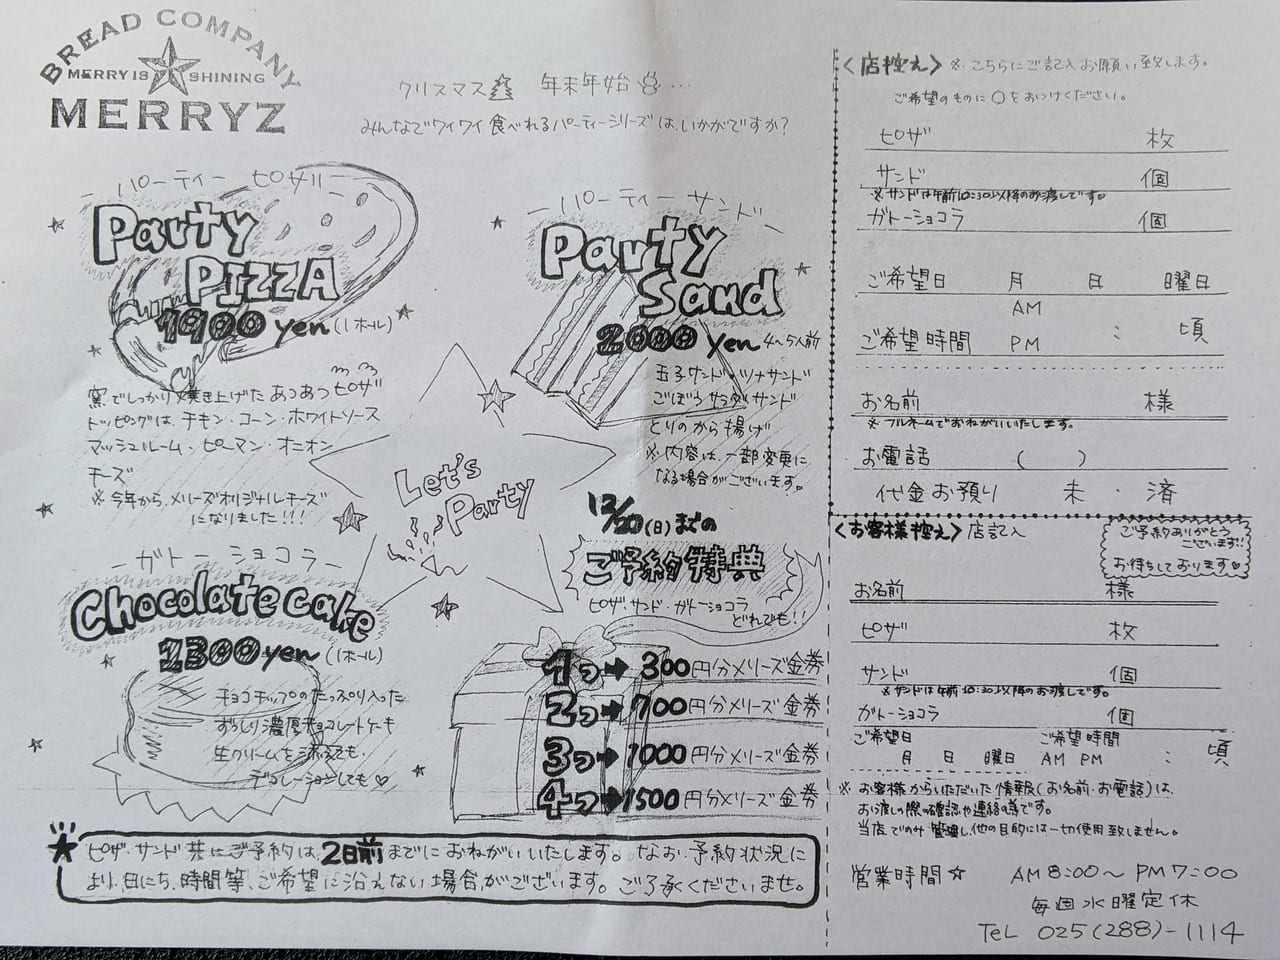 BREAD COMPANY
MERRY IS SHINING
MERRYZ
クリスマス 年末年始 ...
みんなでワイワイ食べれるパーティーシリーズは、いかがですか?
ーパーティー ピザー
Party
PIZZA
1900yen(1ホール)
窯でしっかり焼き上げたあつあつピザ
トッピングは、チキン・コーン・ホワイトソース
マッシュルーム・ピーマン・オニオン
チーズ
※今年から、メリーズオリジナルチーズ
になりました!!!
ーパーティーサンドー
Party
Sand
2000 yen 4~5人前
玉子サンド・ツナサンド
ごぼうサラダサンド
とりのから揚げ
※内容は、一部変更に
なる場合がございます。
Let's
Party
ーガトーショコラー
Chocolate cake
1300yen(1ホール)
チョコチップのたっぷり入った
ずっしり濃厚チョコレートケーキ
生クリームを添えても、
デコレーションしても♡
12/20(日)までの
ご予約特典
ピザ・サンド・ガトーショコラ
どれでも!!
1つ→300円分メリーズ金券
2つ→700円分メリーズ金券
3つ→1000円分メリーズ金券
4つ→1500円分メリーズ金券
★ピザ・サンド共にご予約は、2日前までにおねがいいたします。なお、予約状況に
より、日にち、時間等、ご希望に沿えない場合がございます。ご了承くださいませ。
<店控え>※こちらにご記入お願い致します。
ご希望のものに○をおつけください。
ピザ 枚
サンド 個
※サンドは午前10:30以降のお渡しです。
ガトーショコラ 個
ご希望日 月 日 曜日
AM
ご希望時間 PM : 頃
お名前 様
※フルネームでおねがいいたします。
お電話 ( )
代金お預り 未・済
<お客様控え>店記入
ご予約ありがとう
ございます!!
お待ちしております♡
お名前 様
ピザ 枚
サンド 個
※サンドは午前10:30以降のお渡しです。
ガトーショコラ 個
ご希望日 ご希望時間
月 日 曜日 AM PM : 頃
※お客様からいただいた情報(お名前・お電話)は、
お渡しの際の確認や連絡等です。
当店でのみ管理し、他の目的には一切使用致しません。
営業時間☆ AM8:00~PM7:00
毎週水曜定休
TeL 025(288)-1114